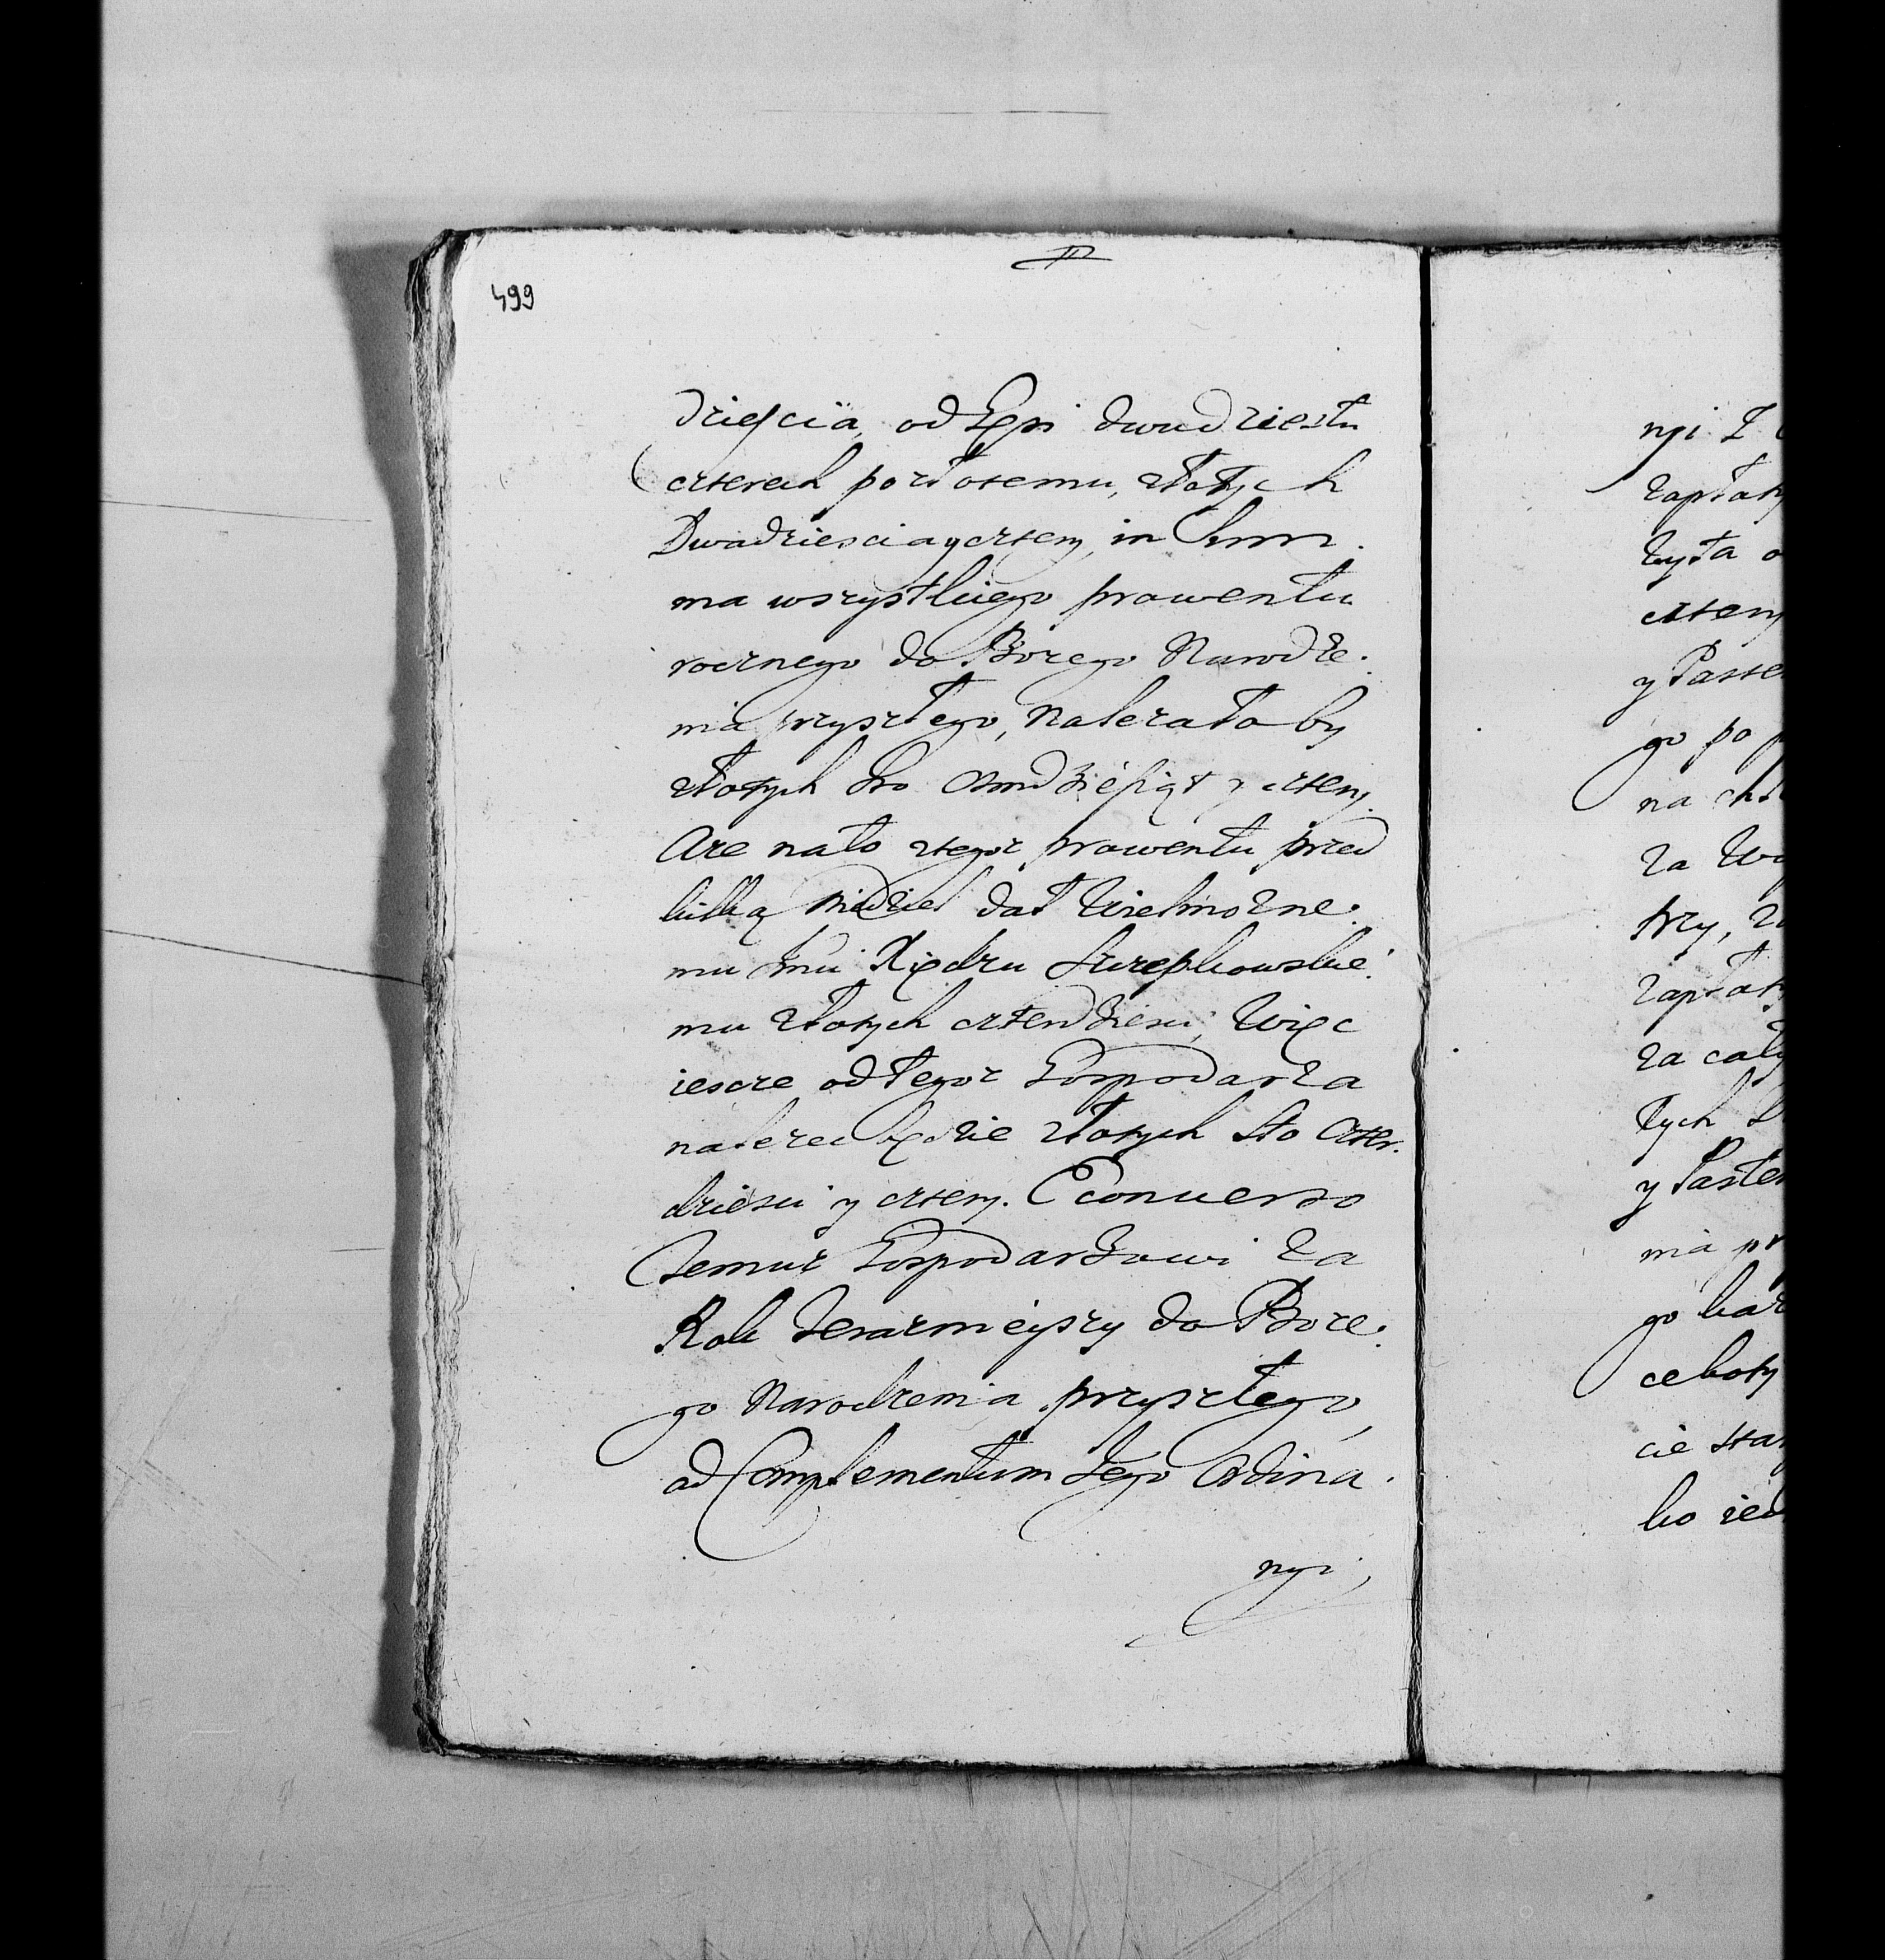 499
dziescia, od Gęsi dwudziestu
czterech po złotemu, złotych
Dwadziescia y cztery, in Sum.
ma wszystkiego prowentu
rocznego do Bozego Narodze.
nia przyszłego, nalezało by
złotych sto osmdziesiąt y cztery.
Aze na to ztegoz prowentu przed
kilką niedziel dał Wielmozne.
mu Jmci Xiędzu
mu złotych czterdziesci, Więc
iescze od tegoz Gospodarza
nalezec będzie złotych sto czter.
dziesci y cztery. E conuerso
temuz Gospodarzowi za
Rok teraznieyszy do Boze.
go Narodzenia przyszłego,
ad Complementum Jego Ordina.
ryi,
ryi Z
zapłaty
była
cztery
y Paster
go po
na
za
trzy,
zapłaty
za cały
tych
y Paster
nia pr
go
ceboty
cie
ko